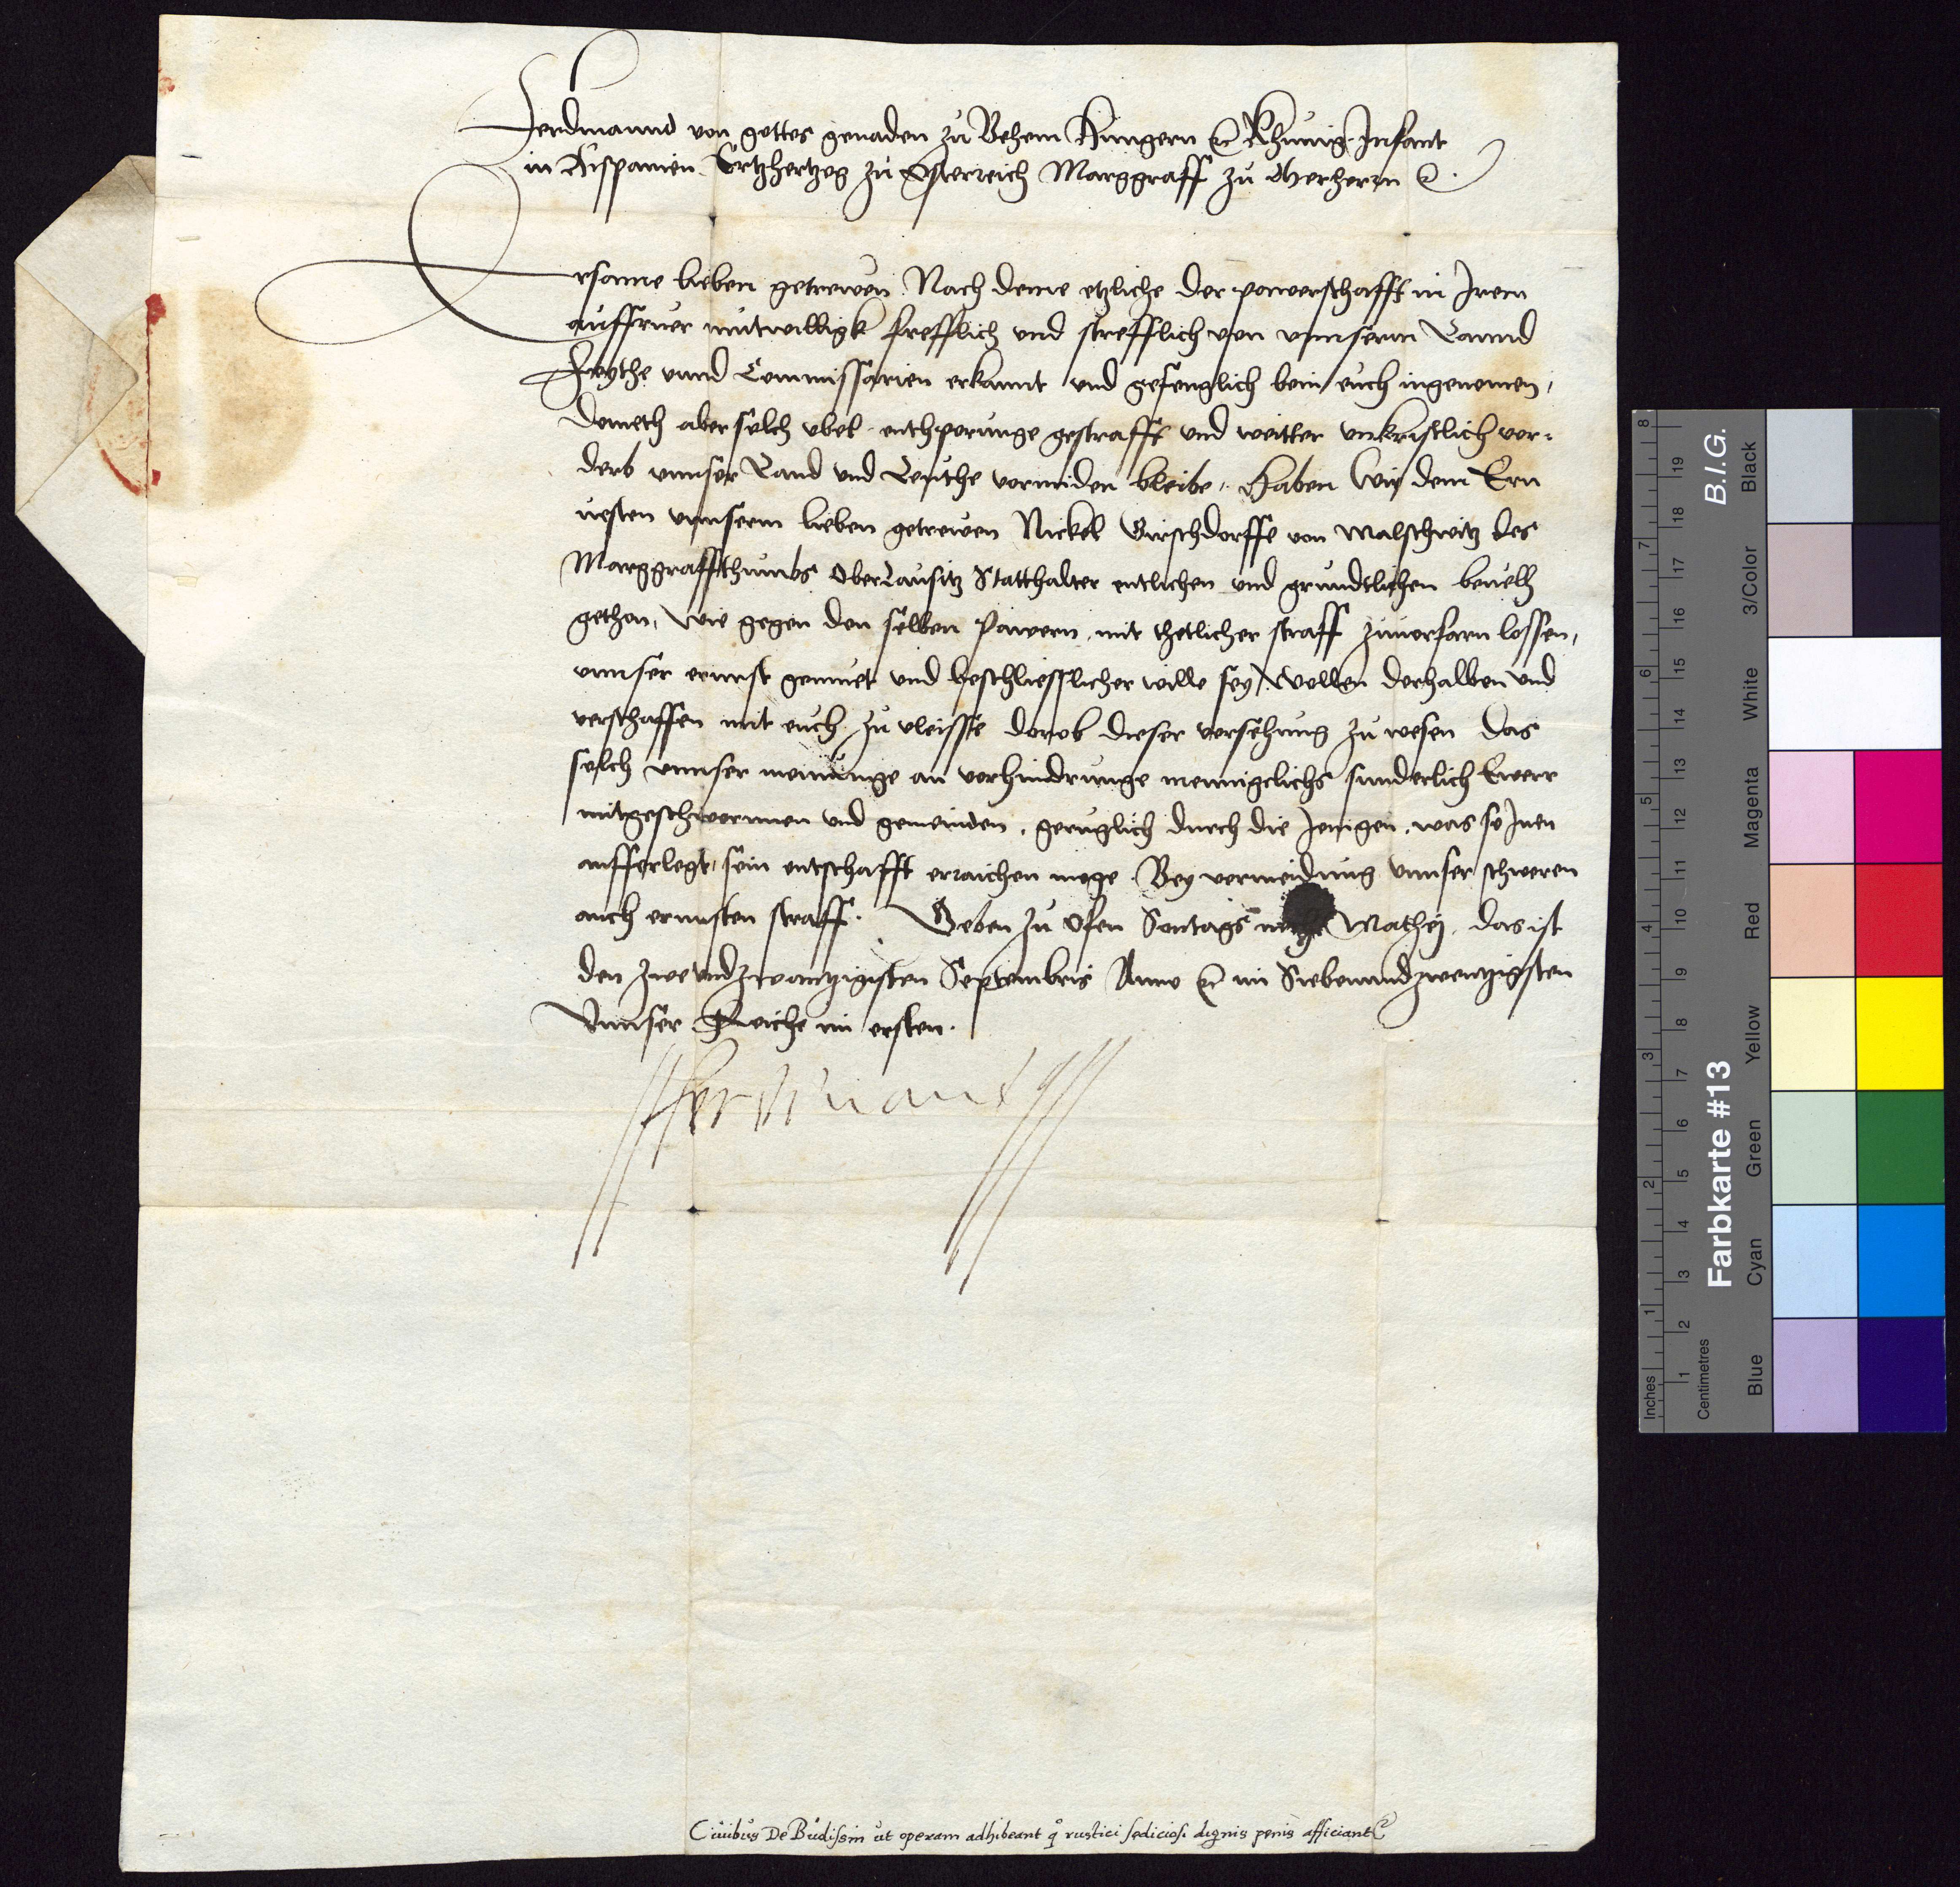 Ferdinannd von gottes genaden zu Behem Hungern &c Khunig Infant
in Hispanien Ertzhertzog zu Osterreich Marggraff zu Merherrn &c.
Ersame lieben getrewen. Nach deme etzliche der powerschafft in Irem
auffruer mutwilligk frefflich und strefflich von unnserm Lannd
Foythe unnd Commissarien erkannt und gefenglich bein euch ingenomen,
dometh aber sulch ubel enthporunge gestrafft und weitter unkristlich vor-
derb unnser Land und Leuthe vormiden bleibe, Haben wir dem Ern
uesten unnserm lieben getrewen Nickel Girschdorffe von Malschwitz des
Marggraffthumbs OberLausitz Statthalter entlichen und grundtlichen beuelh
gethon, wie gegen den selben Pawern, mit thetlicher straff zuuorfarn lossen,
unnser ernnst gemuet und beschliesslicher wille sey, wollen derhalben und
verschaffen mit euch zu vleisse dorob dieser versehung zu wesen das
sulch unnser meinunge an vorhindrunge mennigclichs sunderlich Ewerr
mitgeschwornnen und gemeinden, geruglich durch die Jenigen, was so Inen
aufferlegt, sein entschafft erraichen moge. Bey vermeidung unnser schweren
auch ernnsten straff. Geben zu Ofen Sontags Mathej, das ist
den zweundzwantzigisten Septembris Anno &c im Siebenundzwentzigsten
Unnser Reiche im ersten.
Ferdinand
Civibus De Budissin ut operam adhibeant q rustici sediciosi dignis penis afficiant &c